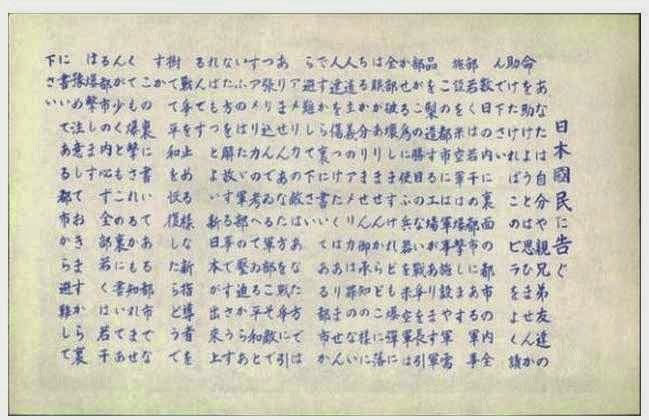 日本國民に告ぐ
あなたは自分や親兄弟友達の
命を助けようとは思ひませんか
助けたければこのビラをよく讀
んで下さい
数日の内に裏面の都市の内全
部若くは若干の都市にある軍事
施設を米空軍は爆撃します
この都市には軍事施設や軍需
品を製造する工場があります軍
部がこの勝目のない戦争を長引
かせる為に使ふ兵器を米空軍は
全部破壊しますけれども爆弾に
は眼がありませんからどこに落
ちるか分りません御承知の様に
人道主義のアメリカは罪のない
人達を傷つけたくはありません
ですから裏に書いてあるか都市
から避難して下さい
アメリカの敵はあなた方ではあ
りませんあなた方を戦争に引
張り込んでゐる軍部こそ敵で
すアメリカの考へてゐる平和と
いふのはたゞ軍部の壓迫からあ
なた方を解放する事です
さうすればもつとよい新日本が出来上
るんです
戦争を止める様な新指導者を
樹てて平和を恢復したらどうで
すか
この裏に書いてある都市でな
くても爆撃されるかも知れませ
んが少くともこの裏に書いてあ
る都市の内必ず全部若くは若干
は爆撃します
豫め注意しておきますから裏
に書いてある都市から避難して
下さい